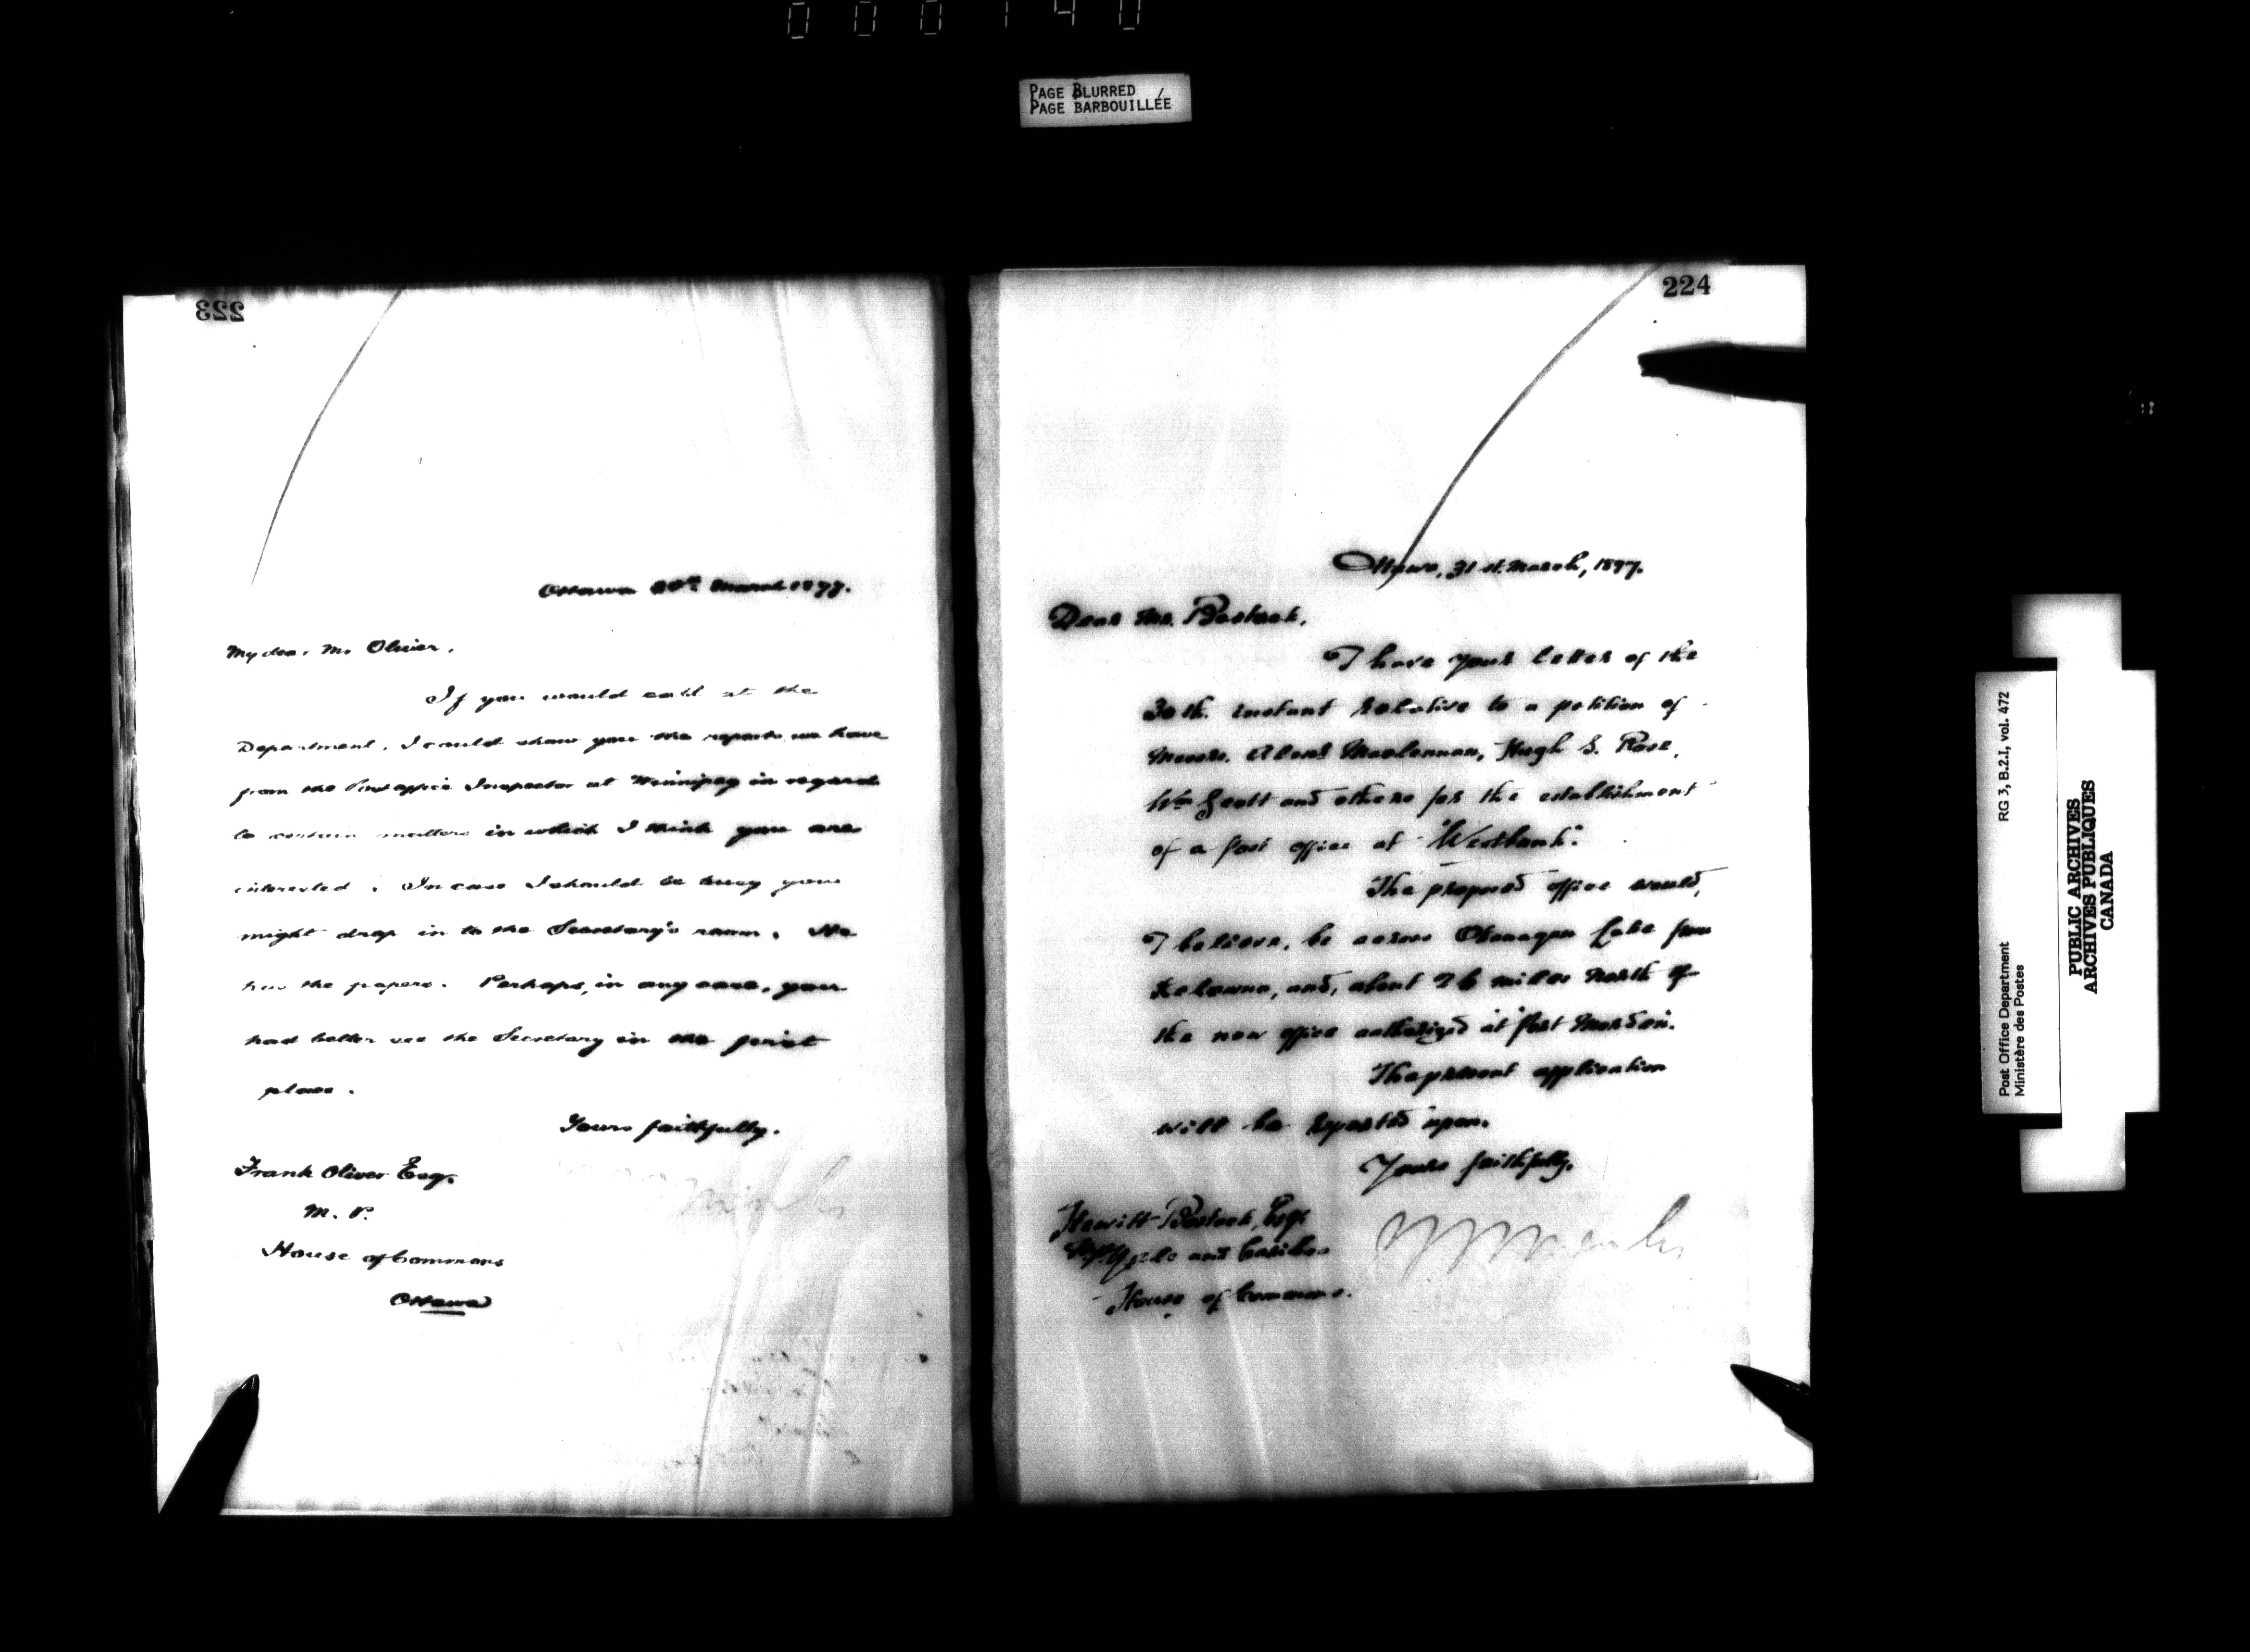 000140
PAGE BLURRED
PAGE BARBOUILLÉE
223
Ottawa March 1897.
My dear Mr Oliver,
If you would call at the
Department, I could show you the reports we have
from the Post office Inspector at Winnipeg in regard
to certain matters in which I think you are
interested. In case I should be busy you
might drop in to the Secretary's room. He
has the papers. Perhaps, in any case, you
had better see the Secretary in the first
place.
Yours faithfully.
Frank Oliver Esq.
M. P.
House of Commons
Ottawa
224
Ottawa, 31st. March, 1897.
Dear Mr. Bostock,
I have your letter of the
30th. instant relative to a petition of
Messrs. MacLennan, Hugh S. Rose,
Wm Scott and others for the establishment
of a post office at "Westbank".
The proposed office would,
I believe, be across Okanagan Lake from
Kelowna, and, about 26 miles North of
the new office authorized at "Port Mordon".
The present application
will be reported upon.
Yours faithfully,
Hewitt Bostock, Esq.
M.P. Yale and Cariboo
House of Commons.
Post Office Department RG 3, B.2.I, vol. 472
Ministère des Postes
PUBLIC ARCHIVES
ARCHIVES PUBLIQUES
CANADA